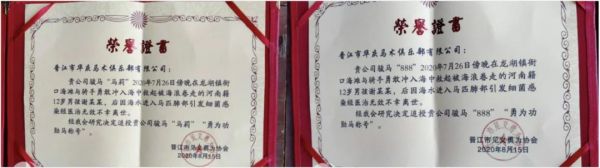 榮譽證書
晋江市华庄马术俱乐部有限公司：
贵公司骏马“马莉”2020年7月26日傍晚在龙湖镇衙
口海滩与骑手勇敢冲入海中救起被海浪卷走的河南籍
12岁男孩谢某某，后因海水进入马匹肺部引发细菌感
染经医治无效不幸离世。
经我会研究决定追授贵公司骏马“马莉”“勇为功
勋马称号”。
晋江市见义勇为协会
2020年8月15日
榮譽證書
晋江市华庄马术俱乐部有限公司：
贵公司骏马“888”2020年7月26日傍晚在龙湖镇衙
口海滩与骑手勇敢冲入海中救起被海浪卷走的河南籍
12岁男孩谢某某，后因海水进入马匹肺部引发细菌感
染经医治无效不幸离世。
经我会研究决定追授贵公司骏马“888”“勇为功
勋马称号”。
晋江市见义勇为协会
2020年8月15日